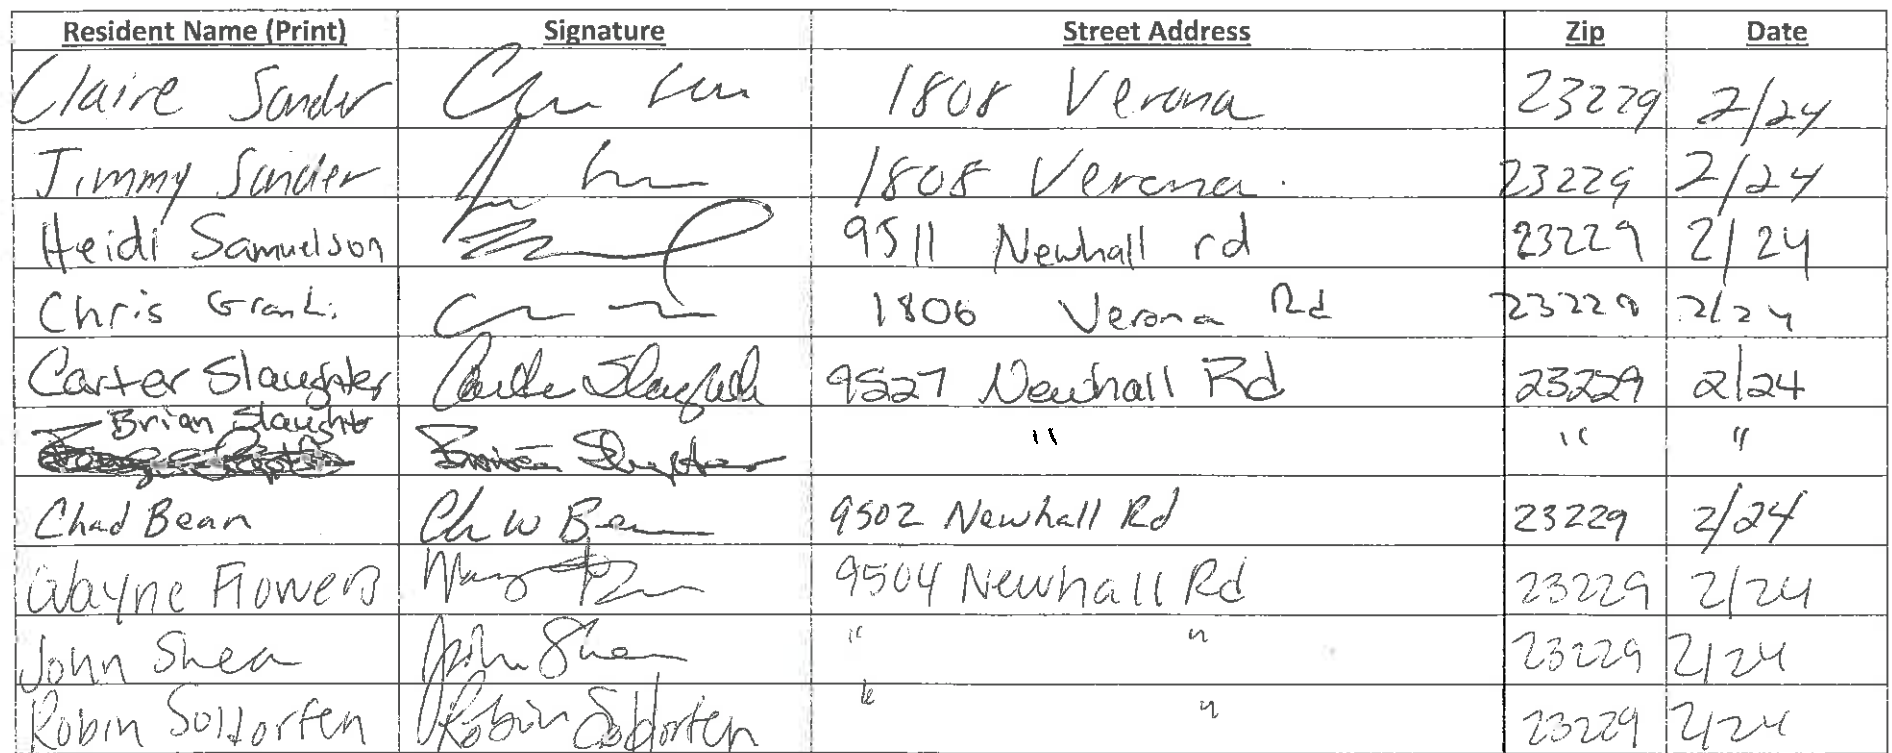 Resident Name (Print) Signature Street Address Zip Date
Claire Sander 1808 Verona 23229 2/24
Jimmy Sander 1808 Verona. 23229 2/24
Heidi Samuelson 9511 Newhall rd 23229 2/24
Chris 1806 Verona Rd 23229 2/24
Carter Slaughter Carter Slaughter 9527 Newhall Rd 23229 2/24
Brian Slaughter " " "
Chad Bean Ch W Bean 9502 Newhall Rd 23229 2/24
Wayne Flowers 9504 Newhall Rd 23229 2/24
John Shea John Shea " " 23229 2/24
Robin " " 23229 2/24